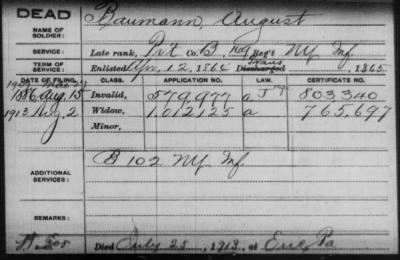 DEAD
NAME OF SOLDIER: Baumann, August
SERVICE: Late rank, Pvt Co. B, Reg't NY Inf.
TERM OF SERVICE: Enlisted 12, 1864 Discharged 1865
DATE OF FILING. CLASS. APPLICATION NO. LAW. CERTIFICATE NO.
1886 Aug. 13 Invalid, 879,977 803340
1913 Aug. 2 Widow, 1,012,125 a 765,697
Minor,
ADDITIONAL SERVICES: B 102 NY Inf.
REMARKS:
Died July 25, 1913, at Erie, Pa